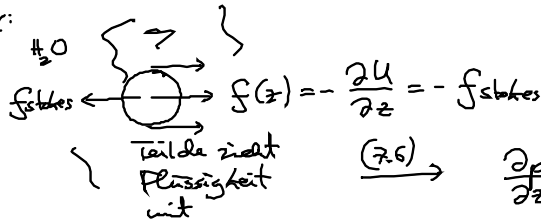 H₂O
f_stokes ← → f(z) = - ∂U/∂z = - f_stokes
Teilche zieht
Flüssigkeit (7.6) →
mit